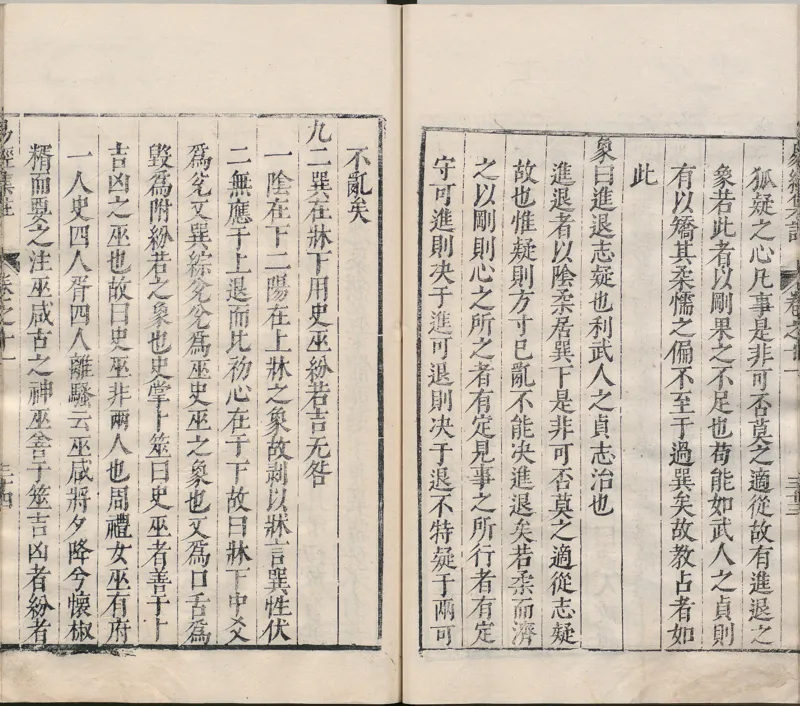 狐疑之心凡事是非可否莫之適從故有進退之
象若此者以剛果之不足也苟能如武人之貞則
有以矯其柔懦之偏不至于過巽矣故教占者如
此
象曰進退志疑也利武人之貞志治也
進退者以陰柔居巽下是非可否莫之適從志疑
故也惟疑則方寸已亂不能决進退矣若柔而濟
之以剛則心之所之者有定見事之所行者有定
守可進則决于進可退則决于退不特疑于兩可
不亂矣
九二巽在牀下用史巫紛若吉无咎
一陰在下二陽在上牀之象故剥以牀言巽性伏
二無應于上退而比初心在于下故曰牀下中爻
為兌又巽綜兌兌為巫史巫之象也又為口舌為
毀為附紛若之象也史掌卜筮曰史巫者善于卜
吉凶之巫也故曰史巫非兩人也周禮女巫有府
一人史四人胥四人離騷云巫咸將夕降今懷椒
糈而要之注巫咸古之神巫善于筮吉凶者紛者
易經集註
卷之十一
三十四